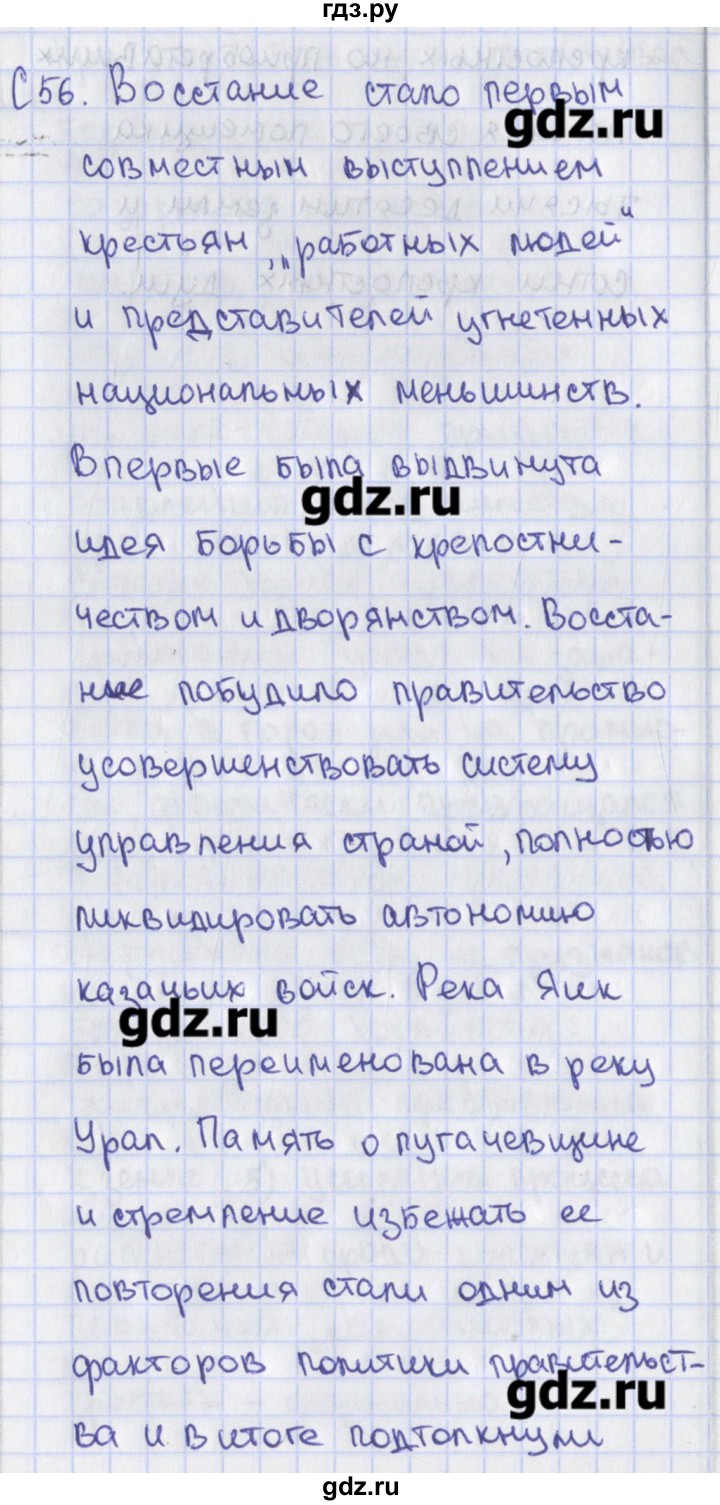 гдз.ру
С 56. Восстание стало первым
gdz.ru
совместным выступлением
крестьян „работных людей“
и представителей угнетенных
национальных меньшинств.
Впервые была выдвинута
gdz.ru
идея борьбы с крепостни-
чеством и дворянством. Восста-
ние побудило правительство
усовершенствовать систему
управления страной, полностью
ликвидировать автономию
казачьих войск. Река Яик
gdz.ru
была переименована в реку
Урал. Память о пугачевщине
и стремление избежать ее
повторения стали одним из
факторов политики правительст-
gdz.ru
ва и в итоге подтолкнули
gdz.ru